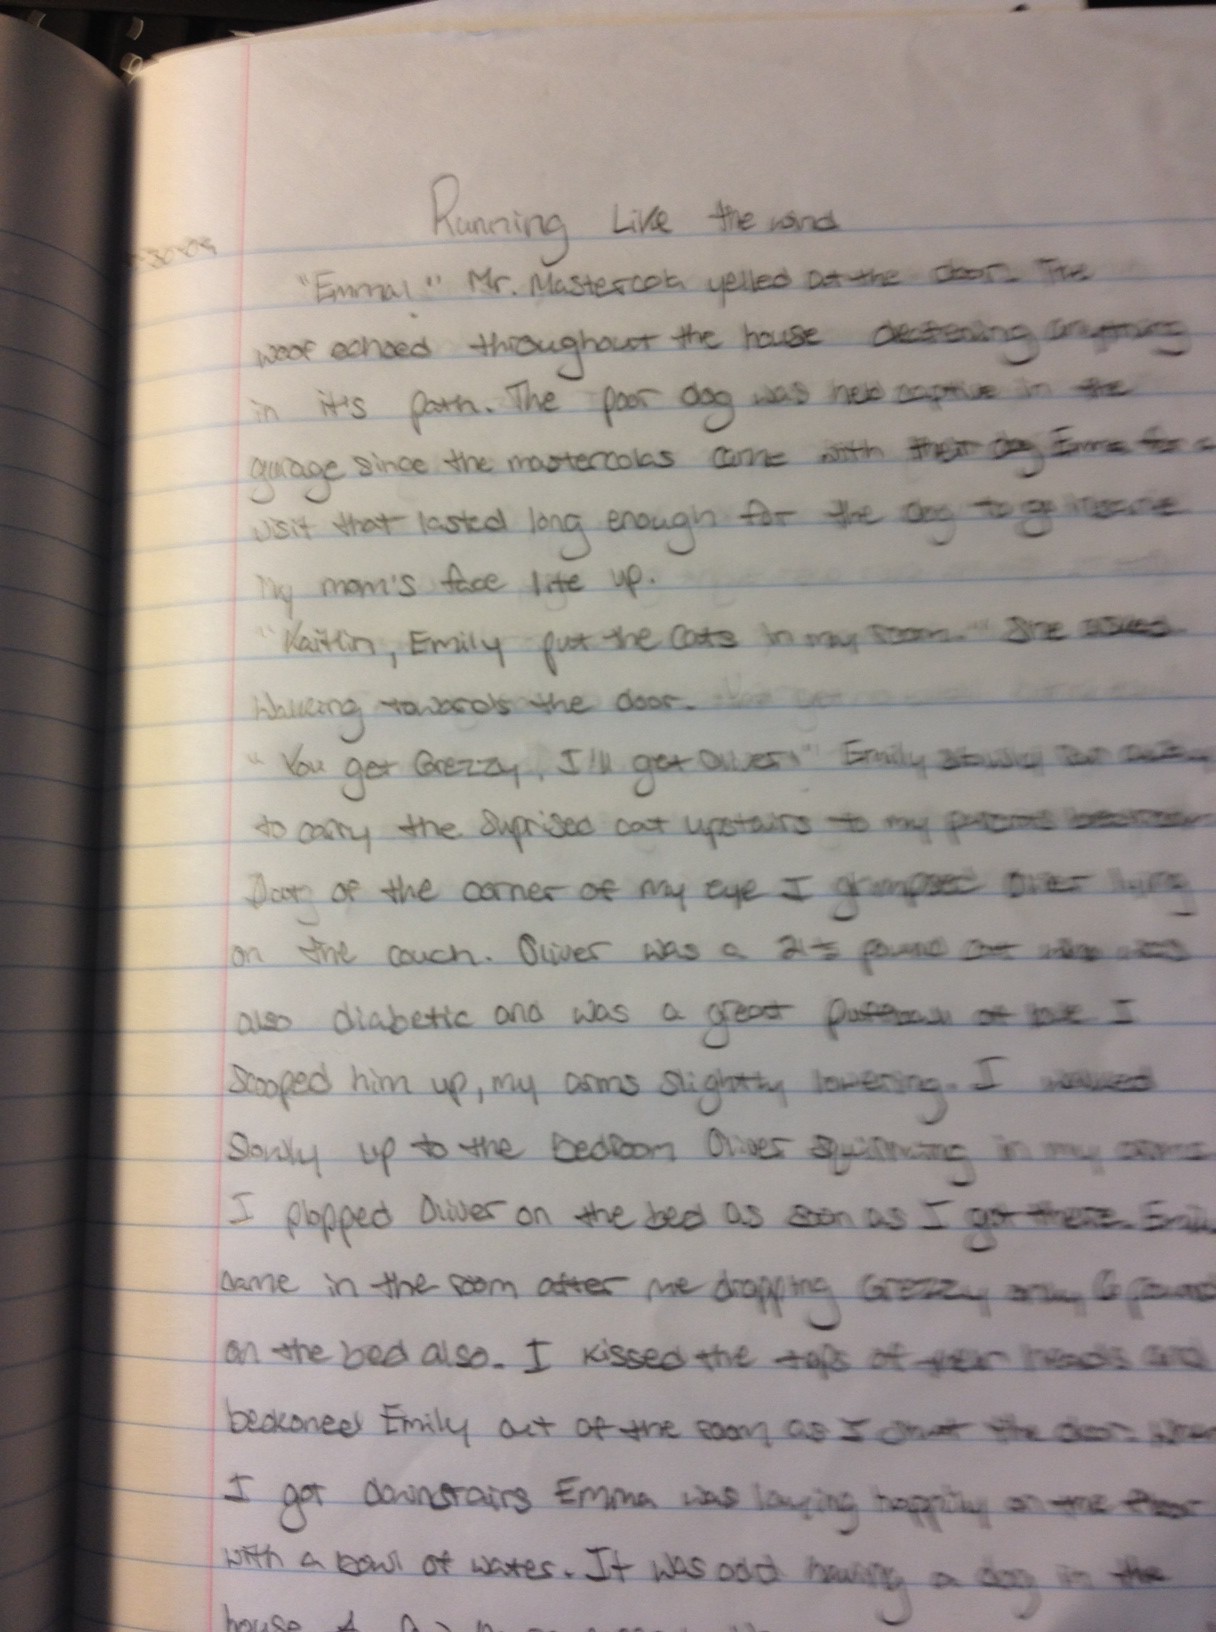 Running Like the wind
"Emma!" Mr. Mastercola yelled at the door. The
woof echoed throughout the house deafening anything
in it's path. The poor dog was held captive in the
garage since the mastercolas came with their dog Emma for a
visit that lasted long enough for the dog to go insane
My mom's face lite up.
"Kaitlin, Emily put the cats in my room." She asked
towards the door.
"You get Grezzy, I'll get Oliver!" Emily slowly ran away
to carry the suprised cat upstairs to my parents bedroom
of the corner of my eye I glimpsed Oliver lying
on the couch. Oliver was a 21 pound cat who was
also diabetic and was a great puffball of love I
scooped him up, my arms slightly lowering. I walked
slowly up to the bedroom Oliver squirming in my arms
I plopped Oliver on the bed as soon as I got there. Emily
came in the room after me dropping Grezzy only 6 pounds
on the bed also. I kissed the tops of their heads and
beckoned Emily out of the room as I shut the door. When
I got downstairs Emma was laying happily on the floor
with a bowl of water. It was odd having a dog in the
house